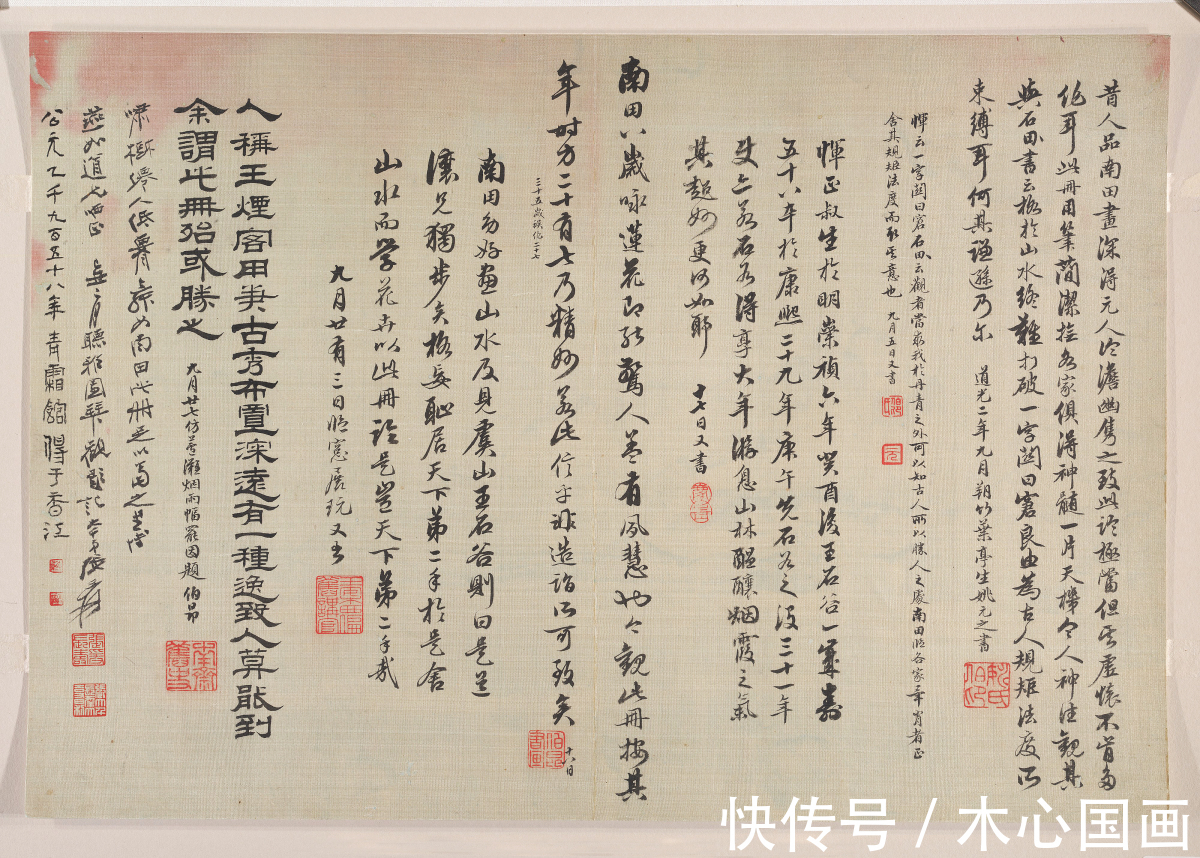 昔人品南田畫深得元人冷澹幽雋之致此論極當但其虛懷不肯多
作耳此冊用筆簡潔挂名家俱得神髓一片天機令人神往觀其
與石田書云格於山水終難打破一字關曰窘良由為古人規矩法度所
束縛耳何其謙遜乃尔 道光二年九月朔竹葉亭生姚元之書
惲云一字關曰窘石田云觀者當求我於丹青之外可以知古人所以勝人之處南田臨各家無肖者正
舍其規矩法度而取其意也 九月五日又書
惲正叔生於明崇禎六年癸酉後王石谷一歲壽
五十八卒於康熙二十九年庚午先石谷之沒三十一年
使亦若石谷得享大年游息山林醞釀烟霞之氣
其超妙更何如耶 十七日又書
南田八歲咏蓮花即能驚人蓋有夙慧也今觀此冊按其
年時方二十有七乃精妙若此信乎非造詣所可致矣 十八日
三十五歲誤作二十七
南田幼好畫山水及見虞山王石谷則曰是道
讓兄獨步矣格妄恥居天下第二手於是舍
山水而學花卉以此冊論是豈天下第二手哉
九月廿有三日晴窓展玩又書
人稱王煙客用筆古秀布置深遠有一種逸致人莫能到
余謂此冊殆或勝之 九月廿七仿落灘烟雨幅罷因題 伯昂
公元乙千九百五十八年 青霜館得于香江
快传号 / 木心国画